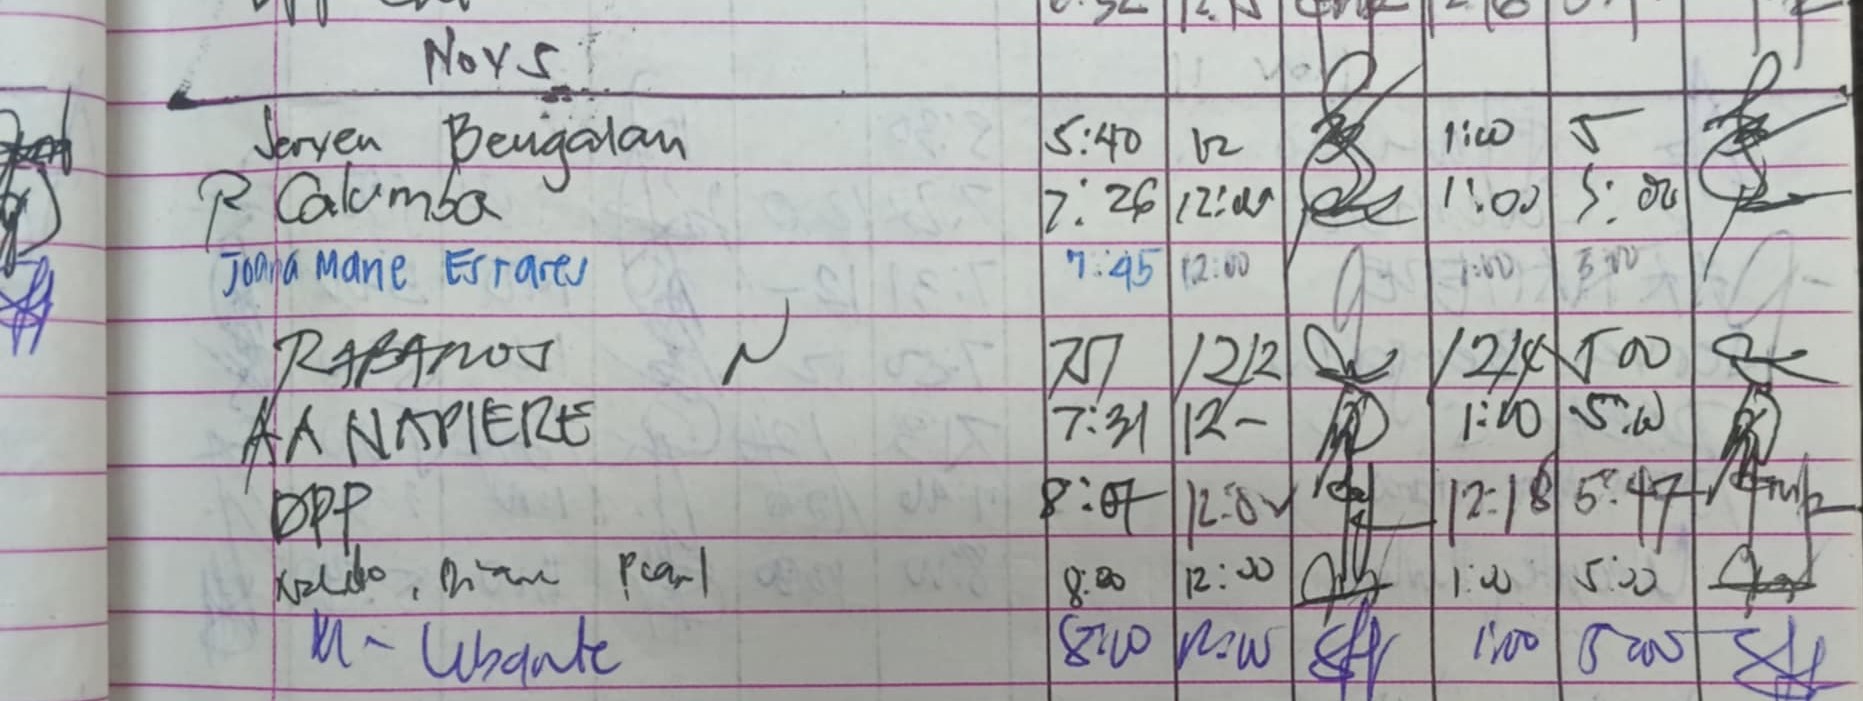 Nov 5
Jerven Bengalan 5:40 12 1:00 5
R Calumba 7:26 12:00 1:00 5:00
Joana Marie Esrares 7:45 12:00 1:00 5:00
RABANOS N 757 1212 1214 500
AA NAPIERE 7:31 12- 1:00 5:00
DPP 8:07 12:02 12:18 5:47
Pearl 8:00 12:00 1:00 5:00
M - Ubsante 8:00 12:00 1:00 5:00